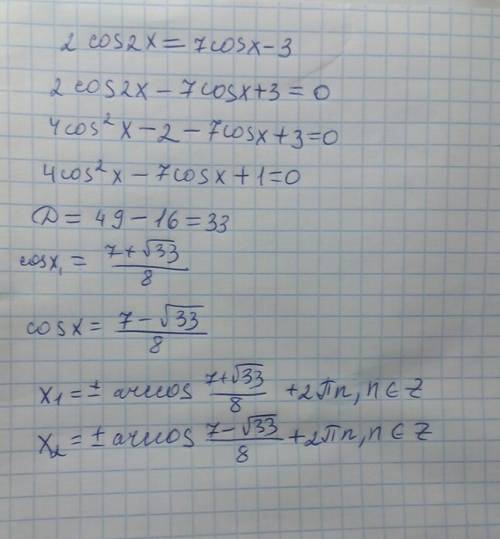 2 cos2x = 7cosx-3
2 cos2x - 7cosx+3 = 0
4cos²x - 2 - 7cosx+3=0
4cos²x - 7cosx+1=0
D = 49-16=33
cosx₁ = (7+√33)/8
cosx = (7-√33)/8
x₁=± arccos (7+√33)/8 +2πn, n∈Z
x₂=± arccos (7-√33)/8 +2πn, n∈Z